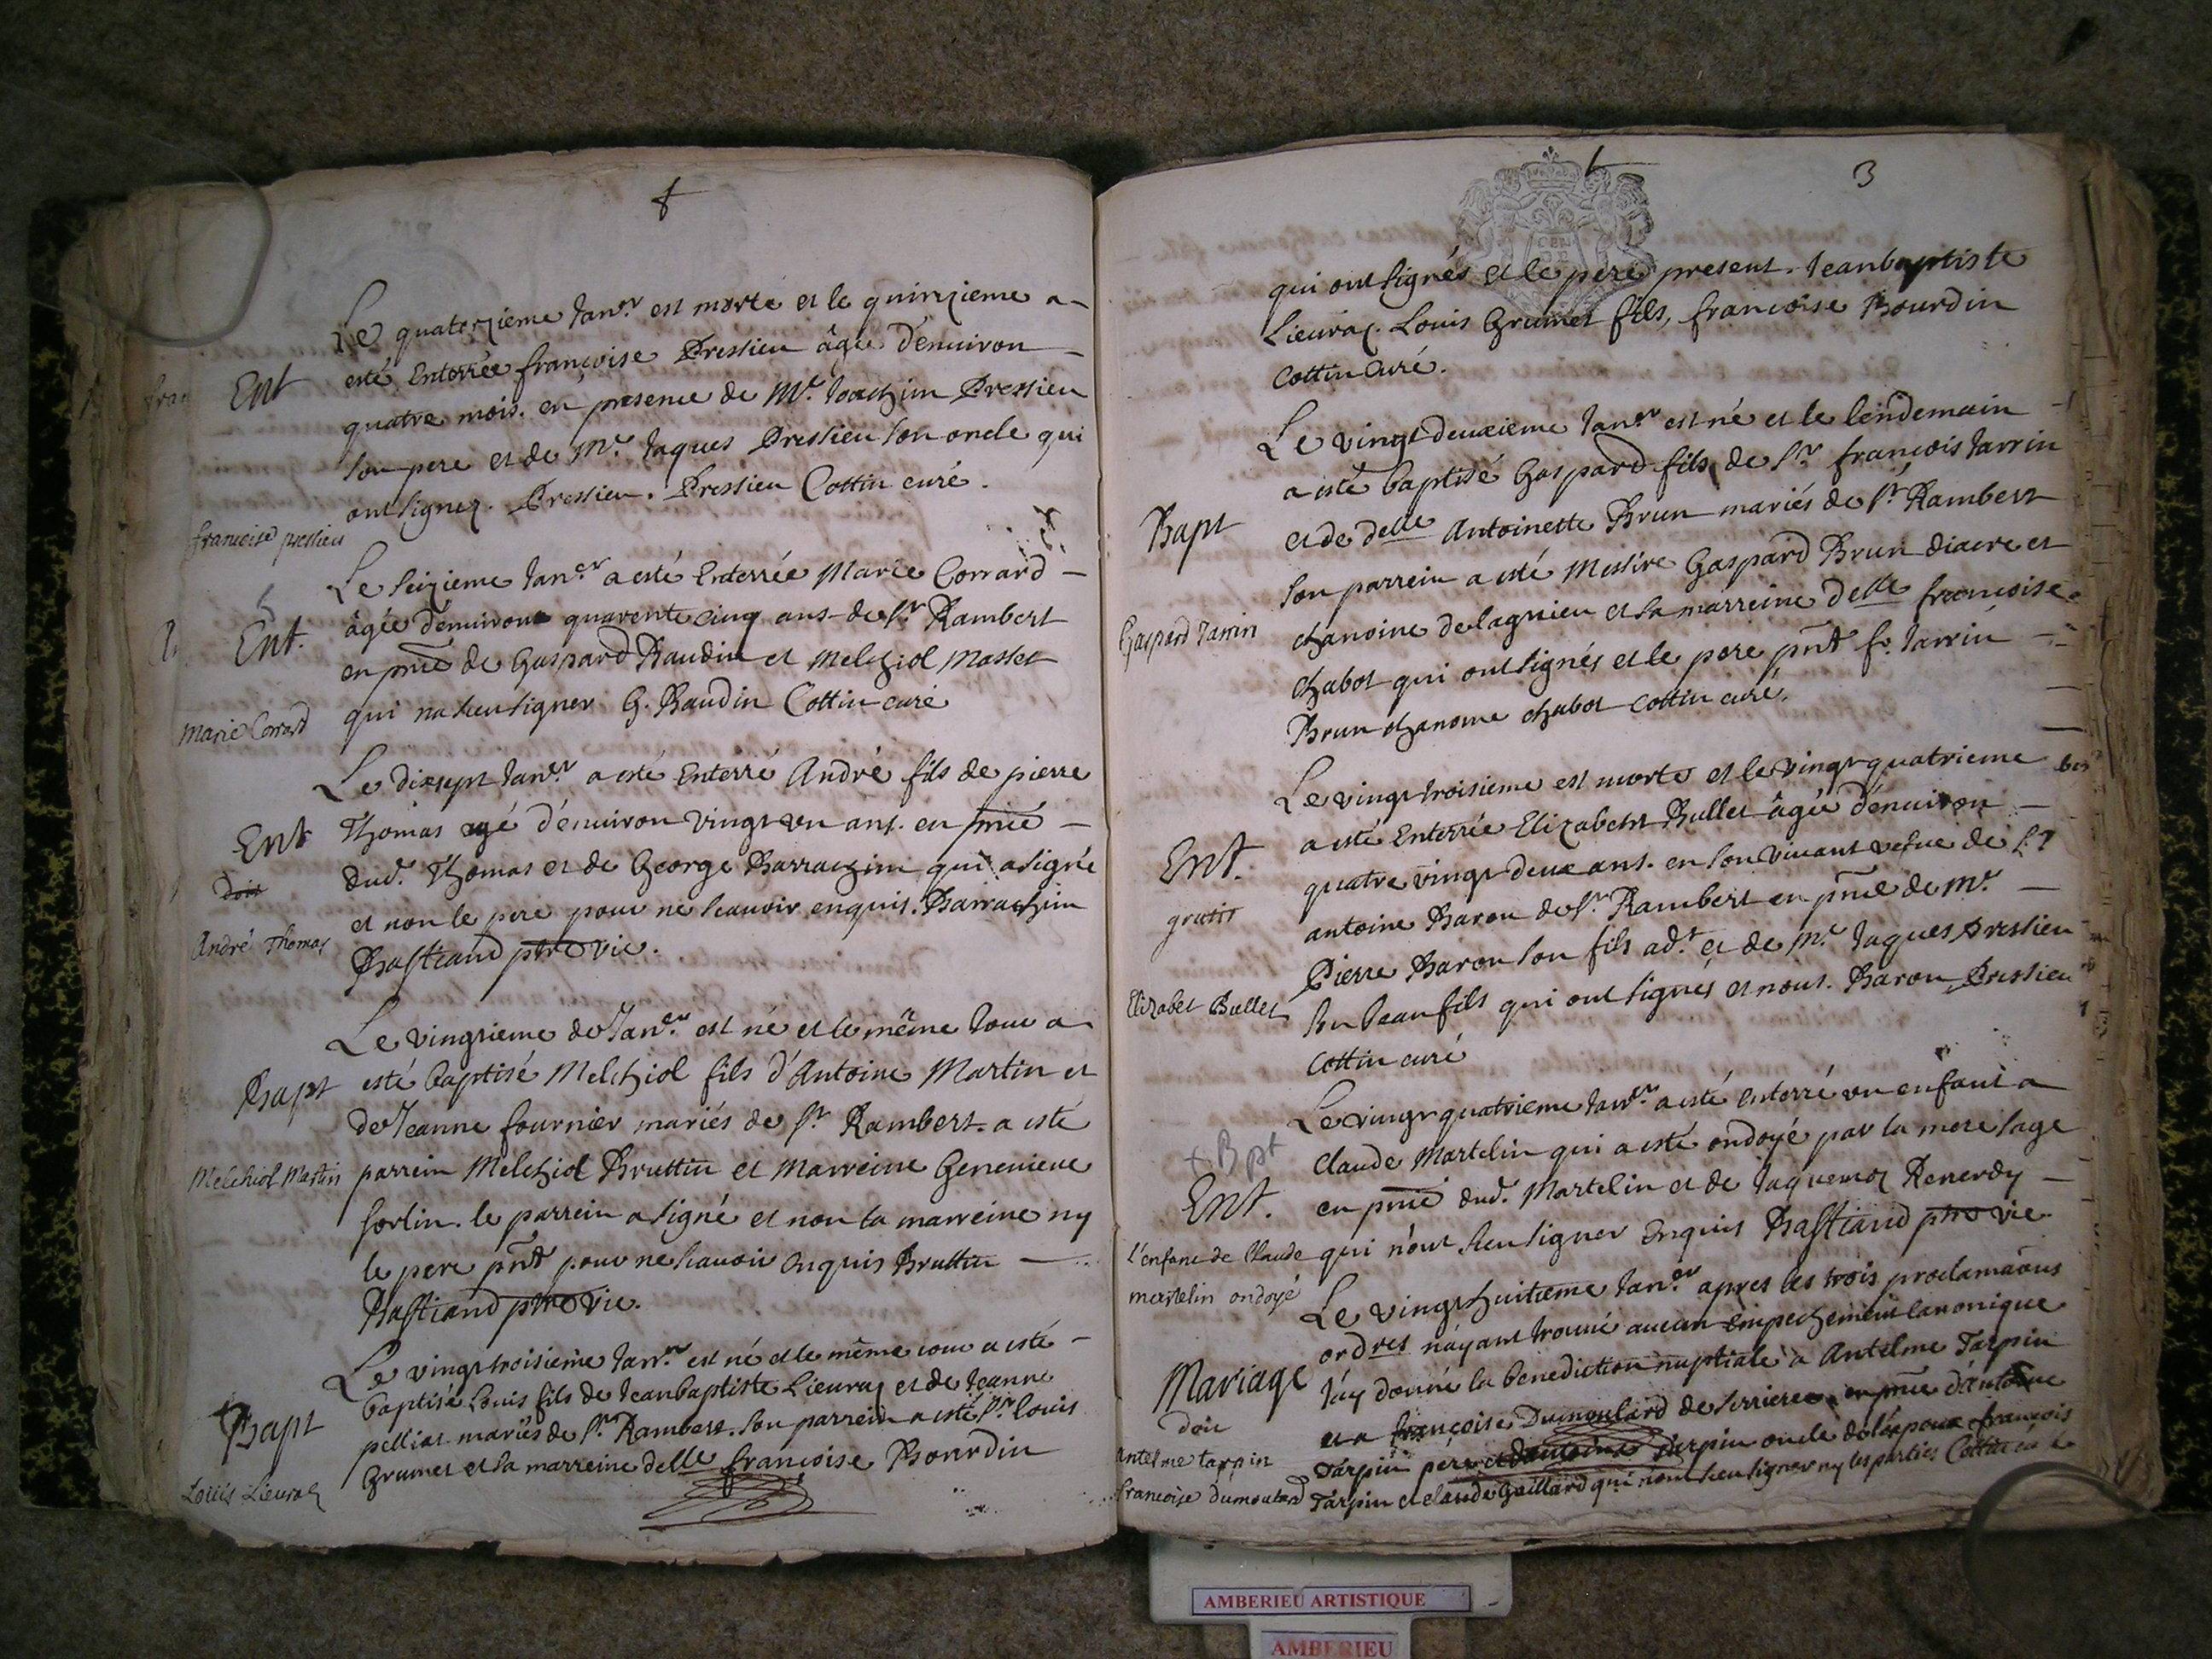 Ent
Le quatorzieme Janer est morte et le quinzieme a
esté Enterrée françoise Pressieu âgée d'enuiron
quatre mois. en presence de Mr. Joachim Pressieu
son pere et de Mr. Jaques Pressieu son oncle qui
ont signez. Pressieu. Pressieu Cottin curé.
francoise pressieu
Ent.
Le seizieme Janer a esté Enterrée Marie Corrard
âgée d'enuiron quarente cinq ans de St Rambert
en pnce de Gaspard Baudin et Melchiol Masset
qui na sceu signer G. Baudin Cottin curé
Marie Corrard
Ent
Le dixsept Janer a esté Enterré André fils de pierre
Thomas agé d'enuiron vingt vn ans. en pnce
dud. Thomas et de George Barrachin qui a signé
et non le pere pour ne scauoir enquis. Barrachin
Bastiand ptre vic.
doit
André Thomas
Bapt
Le vingtieme de Janer est né et le même Jour a
esté baptisé Melchiol fils d'Antoine Martin et
de Jeanne fournier mariés de St Rambert. a esté
parrein Melchiol Bruttin et Marreine Geneuieue
sorlin. le parrein a signé et non la marreine ny
le pere pnt pour ne scauoir enquis Bruttin
Bastiand ptre vic.
Melchiol Martin
Bapt
Le vingt troisieme Janer est né et le même iour a esté
baptisé Louis fils de Jeanbaptiste Lieuraz et de Jeanne
pelliat mariés de St. Rambert. son parrein a esté Sr louis
Grumet et la marreine delle françoise Bourdin
Louis Lieuraz
3
qui ont signés et le pere present. Jeanbaptiste
Lieuraz. Louis Grumet fils, françoise Bourdin
Cottin Curé.
Bapt
Le vingt deuxieme Janer est né et le lendemain
a esté baptisé Gaspard fils de Sr françois Jarrin
et de delle Antoinette Brun mariés de St Rambert
son parrein a esté Messire Gaspard Brun diacre et
chanoine de lagnieu et la marreine delle françoise
Chabot qui ont signés et le pere pnt fr. Jarrin
Brun chanoine chabot cottin curé.
Gaspard Jarrin
Ent.
gratis
Le vingt troisieme est morte et le vingt quatrieme
a esté Enterrée Elizabeth Bullet âgée d'enuiron
quatre vingt deux ans. en son viuant vefue de Sr
antoine Baron de St Rambert en pnce de Mr
Pierre Baron son fils adt. et de Mr. Jaques Pressieu
son beau fils qui ont signés et nous. Baron Pressieu
cottin curé
Elizabet Bullet
+ Bpt
Ent.
Le vingt quatrieme Janer a esté enterré vn enfant a
Claude Martelin qui a esté ondoyé par la mere sage
en pnce dud. Martelin et de Jaquemoz Renerdy
qui n'ont sceu signer Enquis Bastiand ptre vic.
L'enfant de Claude
martelin ondoyé
Mariage
doit
Le vingt huitieme Janer apres les trois proclamaõns
ordres n'ayant trouué aucun empechement canonique
J'ay donné la benediction nuptiale a Antelme Tarpin
et a françoise Dumoulard de serrieres en pnce d'antoine
Tarpin pere et tarpin oncle de l'epoux françois
Tarpin et claude Gaillard qui n'ont sceu signer ny les parties Cottin cu
Antelme tarpin
francoise dumoulard
AMBERIEU ARTISTIQUE
AMBERIEU